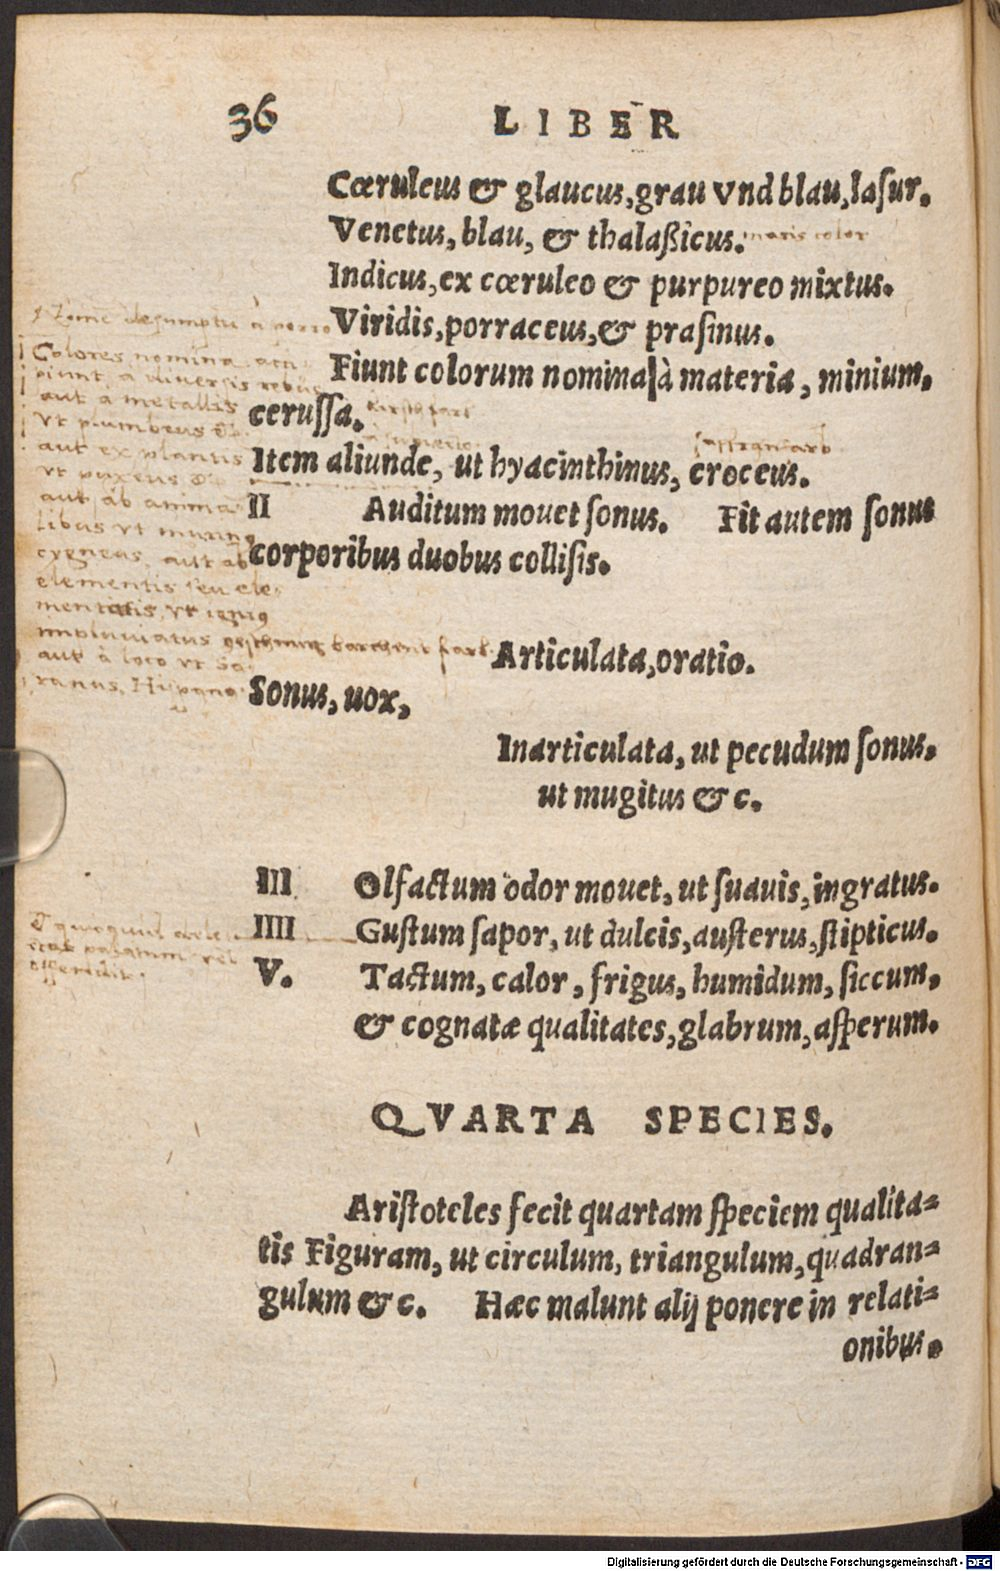 36 LIBER
Cœruleus & glaucus, grau vnd blau, lasur.
Venetus, blau, & thalaßicus. maris color
Indicus, ex cœruleo & purpureo mixtus.
Viridis, porraceus, & prasinus.
Fiunt colorum nomina à materia, minium,
cerussa.
Item aliunde, ut hyacinthinus, croceus.
II Auditum mouet sonus. Fit autem sonus
corporibus duobus collisis.
Articulata, oratio.
Sonus, uox,
Inarticulata, ut pecudum sonus,
ut mugitus &c.
III Olfactum odor mouet, ut suauis, ingratus.
IIII Gustum sapor, ut dulcis, austerus, stipticus.
V. Tactum, calor, frigus, humidum, siccum,
& cognatæ qualitates, glabrum, asperum.
QVARTA SPECIES.
Aristoteles fecit quartam speciem qualita-
tis Figuram, ut circulum, triangulum, quadran-
gulum &c. Hæc malunt alij ponere in relati-
onibus.
Colores nomina acci
piunt, a diuersis rebus
aut a metallis
vt plumbeus
aut ex plantis
vt puxeus
aut ab anima
libus vt
cygneus, aut ab
elementis seu ele
mentatis, vt
impluuiatus
aut à loco vt
Hispano
palatum vel
offendit.
Digitalisierung gefördert durch die Deutsche Forschungsgemeinschaft - DFG